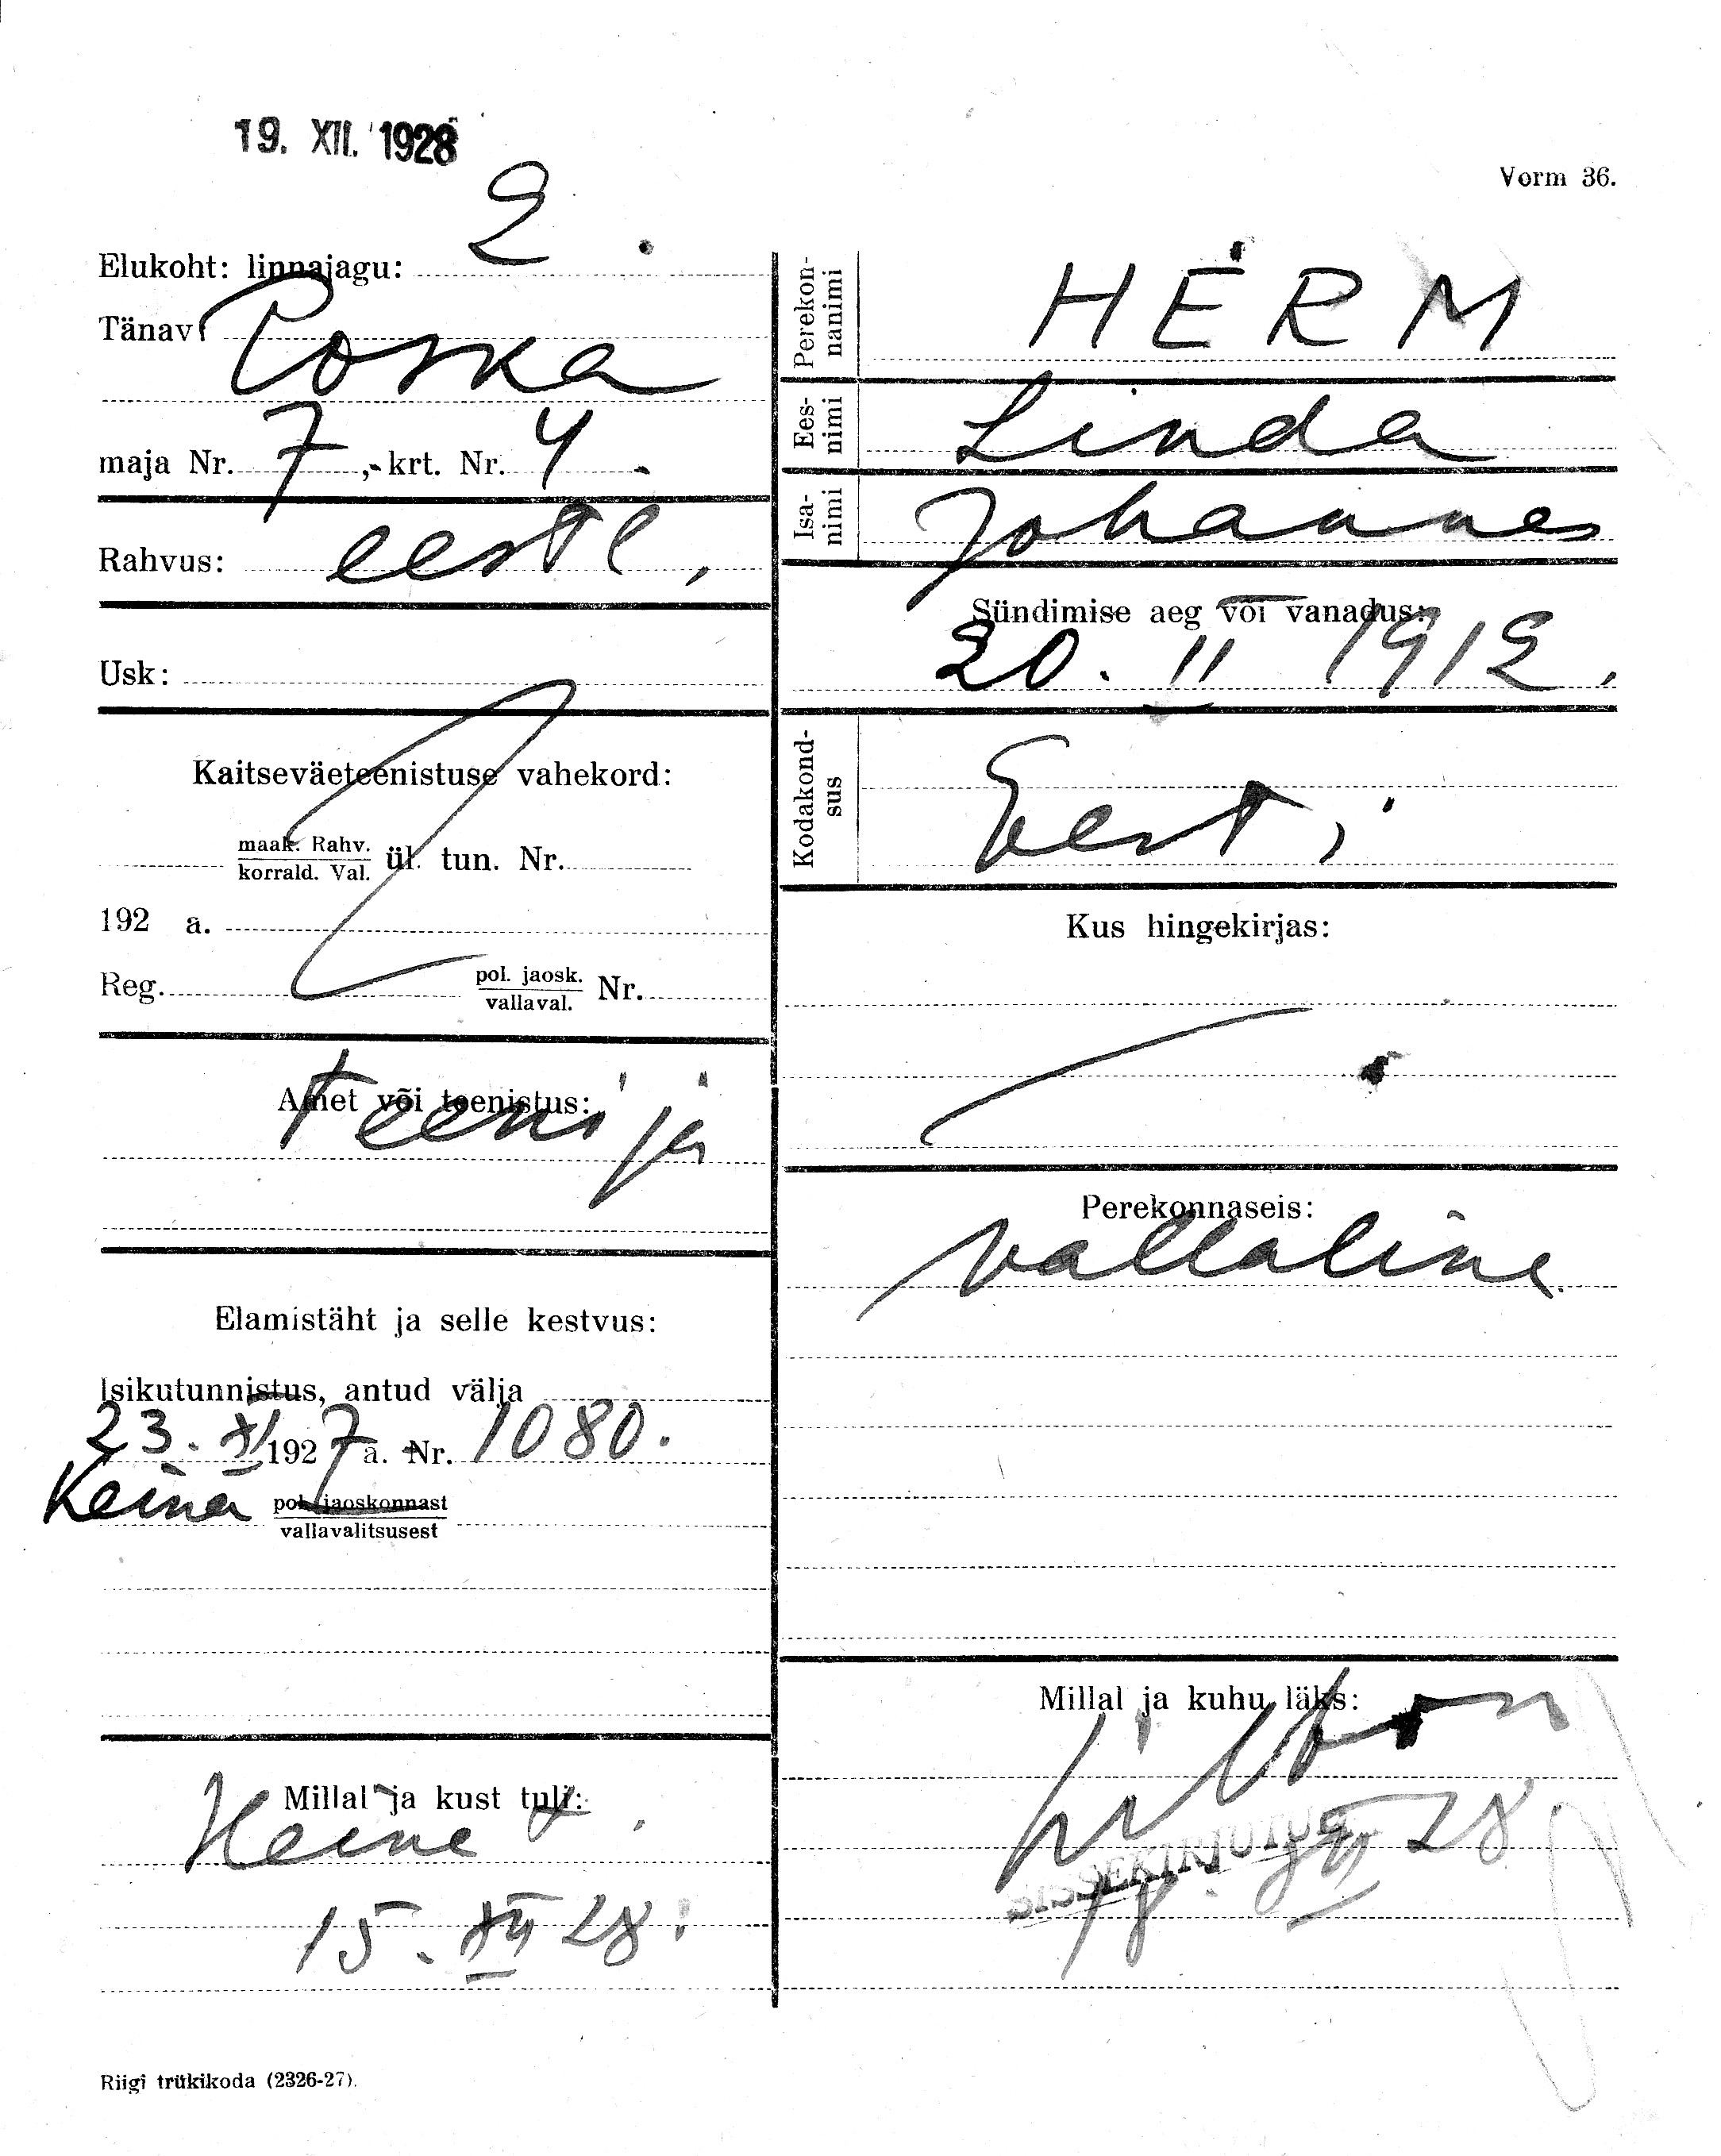 19. XII. 1928
Vorm 36.
Elukoht: linnajagu: 2.
Tänav Poska
maja Nr. 7, krt. Nr. 4.
Rahvus: eesti,
Usk:
Kaitseväeteenistuse vahekord:
maak. Rahv.
korrald. Val. ül. tun. Nr.
192 a.
Reg. pol. jaosk.
vallaval. Nr.
Amet või teenistus:
teenija
Elamistäht ja selle kestvus:
Isikutunnistus, antud välja
23. XI 1927 a. Nr. 1080.
Keina pol. jaoskonnast
vallavalitsusest
Millal ja kust tuli:
15. XII 28.
Riigi trükikoda (2326-27).
Perekon-
nanimi HERM
Ees-
nimi Linda
Isa-
nimi Johannes
Sündimise aeg või vanadus:
20. II 1912.
Kodakond-
sus Eesti
Kus hingekirjas:
Perekonnaseis:
vallaline
Millal ja kuhu läks:
SISSEKIRJUTUS
28